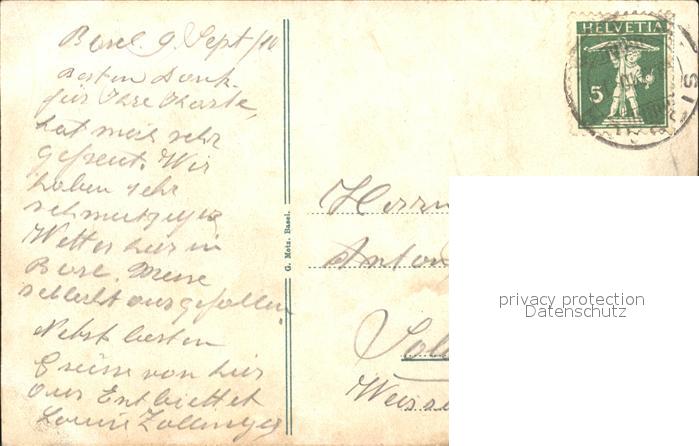 Basel. 9. Sept/10
Besten Dank.
für Ihre Karte,
hat mich sehr
gefreut. Wir
haben sehr
schmutziges
Wetter hier in
Basel. Messe
schlecht ausgefallen
Nebst besten
Grüsse von hier
aus Entbiettet
Louise Zollinger
G. Metz. Basel.
HELVETIA
5
Herrn
Anton
privacy protection
Datenschutz